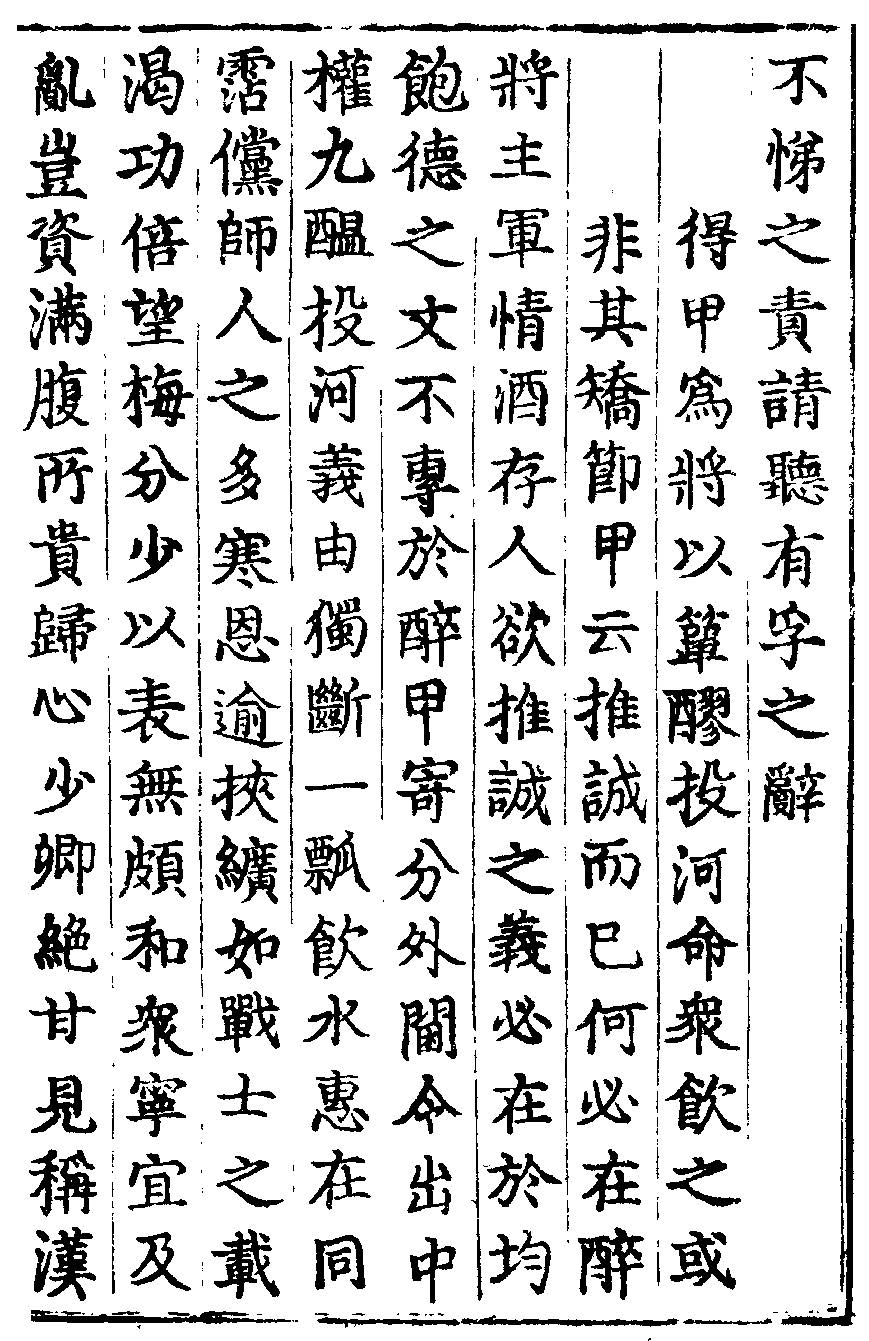 不悌之責請聽有孚之辭
得甲爲將以簞醪投河命衆飲之或
非其矯節甲云推誠而巳何必在醉
將主軍情酒存人欲推誠之義必在於均
飽德之文不專於醉甲寄分外閫令出中
權九醞投河義由獨斷一瓢飲水惠在同
霑儻師人之多寒恩逾挾纊如戰士之載
渴功倍望梅分少以表無頗和衆寧宜及
亂豈資满腹所貴歸心少卿絶甘見稱漢